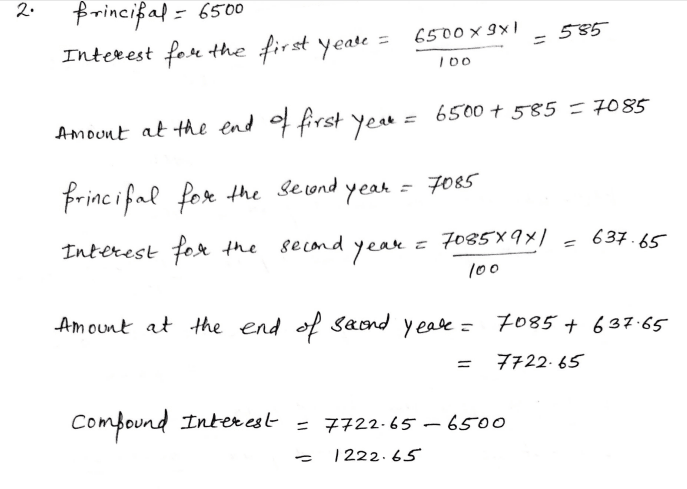 2. Principal = 6500
Interest for the first year = 6500 x 9x1 / 100 = 585
Amount at the end of first year = 6500 + 585 = 7085
Principal for the second year = 7085
Interest for the second year = 7085x9x1 / 100 = 637.65
Amount at the end of second year = 7085 + 637.65
= 7722.65
Compound Interest = 7722.65 – 6500
= 1222.65